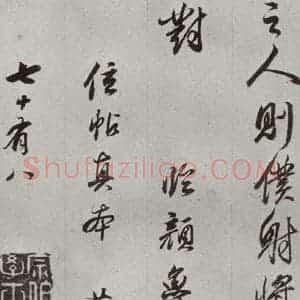 之人則僕射將
對
臨顏魯
信帖真本
七十有八
Shufaziliao.COM